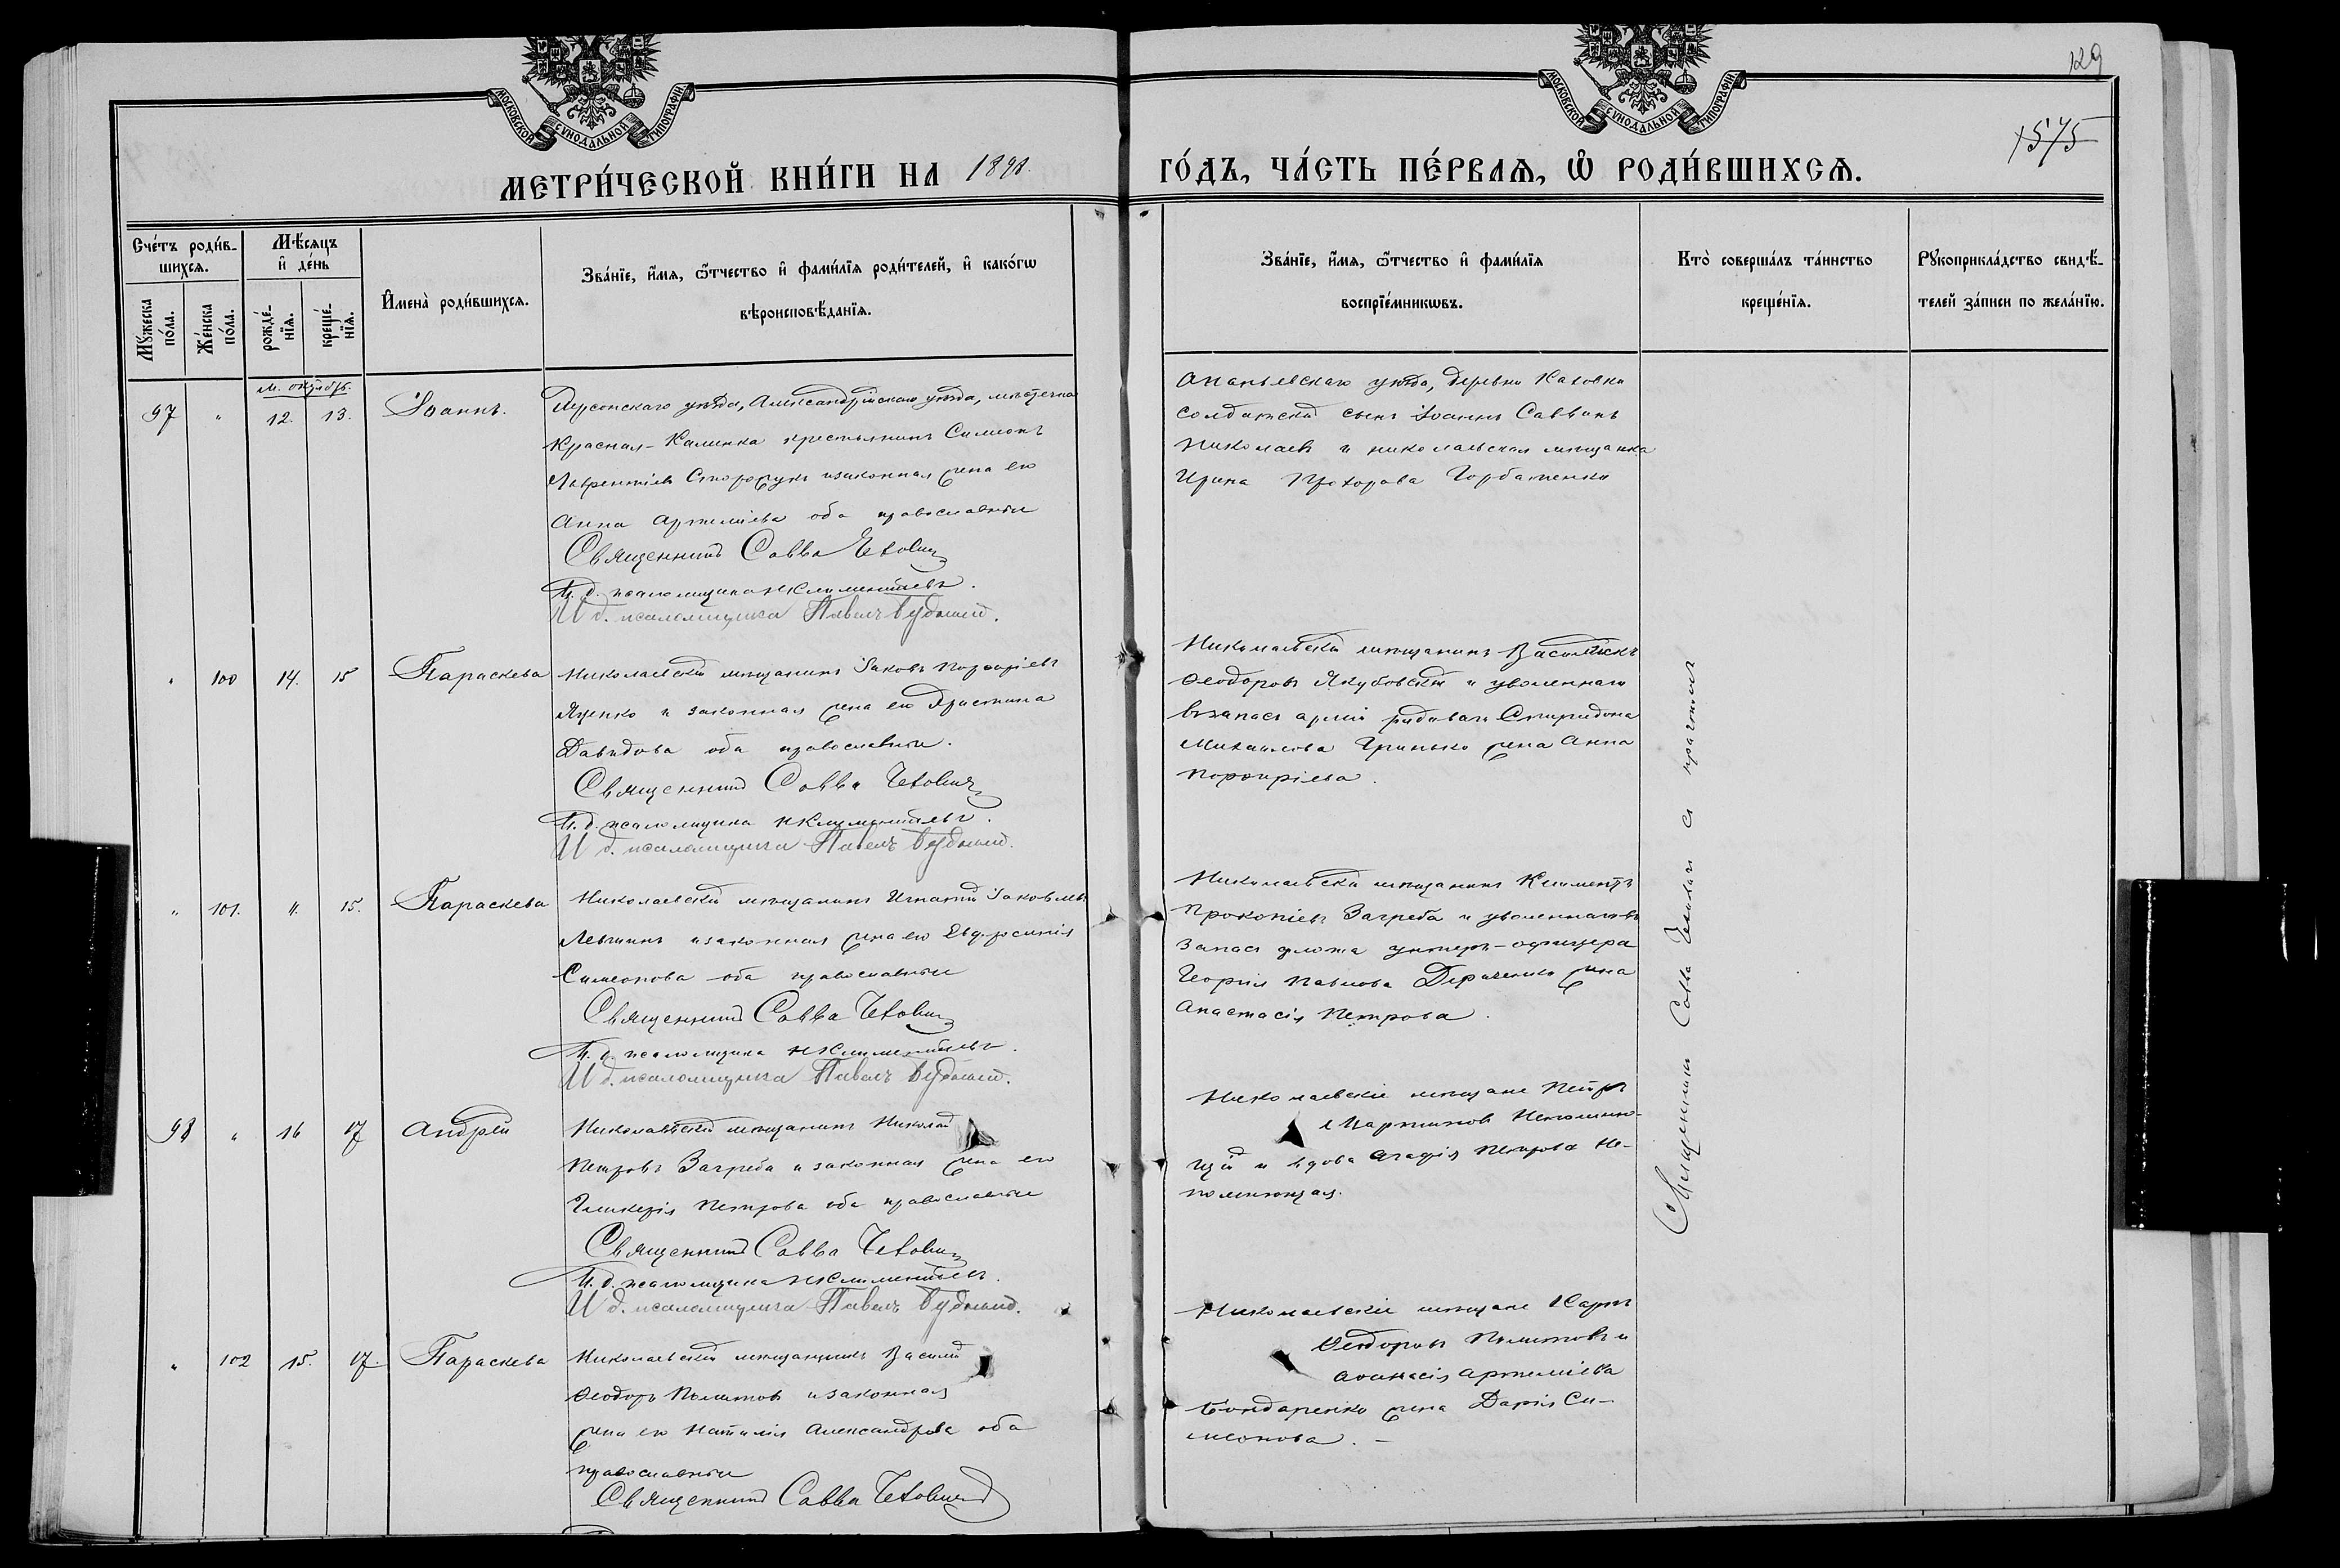 МОСКОВСКОЙ СѴНОДАЛЬНОЙ ТИПОГРАФІИ
МОСКОВСКОЙ СѴНОДАЛЬНОЙ ТИПОГРАФІИ
129
1575
МЕТРИ́ЧЕСКОЙ КНИ́ГИ НА 1898.
ГО́ДЪ, ЧА́СТЬ ПЕ́РВАѦ, Ѡ҆ РОДИ́ВШИХСѦ.
Сче́тъ роди́в-
шихсѧ.
Мꙋ́жеска
по́ла.
Же́нска
по́ла.
Мѣ́сѧцъ
и҆ де́нь
рожде́-
нїѧ.
креще́-
нїѧ.
И҆мена̀ роди́вшихсѧ.
Зва́нїе, и҆́мѧ, ѻ҆́тчество и҆ фами́лїѧ роди́телей, и҆ како́гѡ
вѣроисповѣ́данїѧ.
Зва́нїе, и҆́мѧ, ѻ҆́тчество и҆ фами́лїѧ
воспрїе́мникѡвъ.
Кто̀ соверша́лъ та́инство
креще́нїѧ.
Рꙋкоприкла́дство свидѣ́-
телей за́писи по жела́нїю.
м. октябр.
97 " 12. 13. Іоаннъ.
Херсонскаго уѣзда, Александрійскаго уѣзда, мѣстечка
Красная-Каменка крестьянинъ Симеонъ
Лаврентіевъ изаконная жена его
Анна Артеміева оба православные
Священникъ Савва Чехович
И. д. псаломщика Н Климентіевъ.
И д. псаломщика Павелъ
Ананьевскаго уѣзда, деревни
солдатскій сынъ Іоаннъ Саввинъ
Николаевъ и николаевская мѣщанка
Ирина Прохорова Горбатенко
" 100 14. 15 Параскева
Николаевскій мѣщанинъ Іаковъ Порфиріевъ
Яценко и законная жена его Христина
Давидова оба православные.
Священникъ Савва Чехович
И. д. псаломщика Н Климентіевъ.
И д. псаломщика Павелъ
Николаевскій мѣщанинъ
Ѳеодоровъ Якубовскій и уволеннаго
взапасъ арміи рядоваго Спиридона
Михаилова Гринько жена Анна
Порфиріева.
" 101. 15. Параскева
Николаевскій мѣщанинъ Игнатій Іаковлевъ
Левшинъ изаконная жена его Евфросинія
Симеонова оба православные
Священникъ Савва Чехович
И. д. псаломщика Н Климентіевъ.
И д. псаломщика Павелъ
Николаевскій мѣщанинъ Климентъ
Прокопіевъ Загреба и уволеннаго въ
запасъ флота унтеръ-офицера
Георгія Павлова жена
Анастасія Петрова.
98 " 16 17 Андрей
Николаевскій мѣщанинъ Николай
Петровъ Загреба и законная жена его
Гликерія Петрова оба православные
Священникъ Савва Чехович
И. д. псаломщика Н Климентіевъ.
И д. псаломщика Павелъ
Николаевскіе мѣщане Петръ
Мартиновъ Непомню-
щій и вдова Агафія Петрова Не-
помнющая.
" 102 15. 17. Параскева
Николаевскій мѣщанинъ Василій
Ѳеодоръ изаконная
жена его Наталія Александрова оба
православные
Священникъ Савва Чехович
Николаевскіе мѣщане Карпъ
Ѳеодоровъ и
Аѳанасія Артеміева
Бондаренко жена Дарія Си-
меонова.-
Священникъ Савва Чехович съ причтомъ